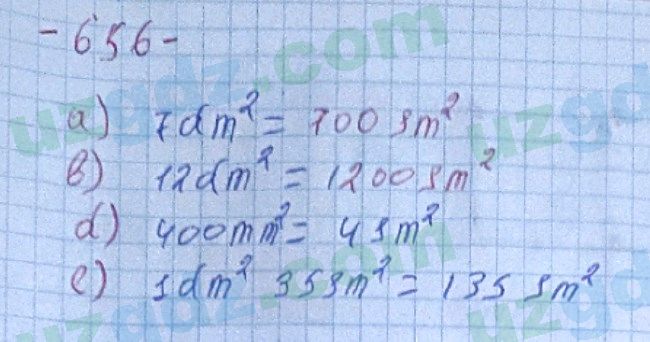 -656-
a) 7dm² = 700 sm²
b) 12dm² = 1200 sm²
d) 400mm² = 4 sm²
e) 1dm² 35sm² = 135 sm²